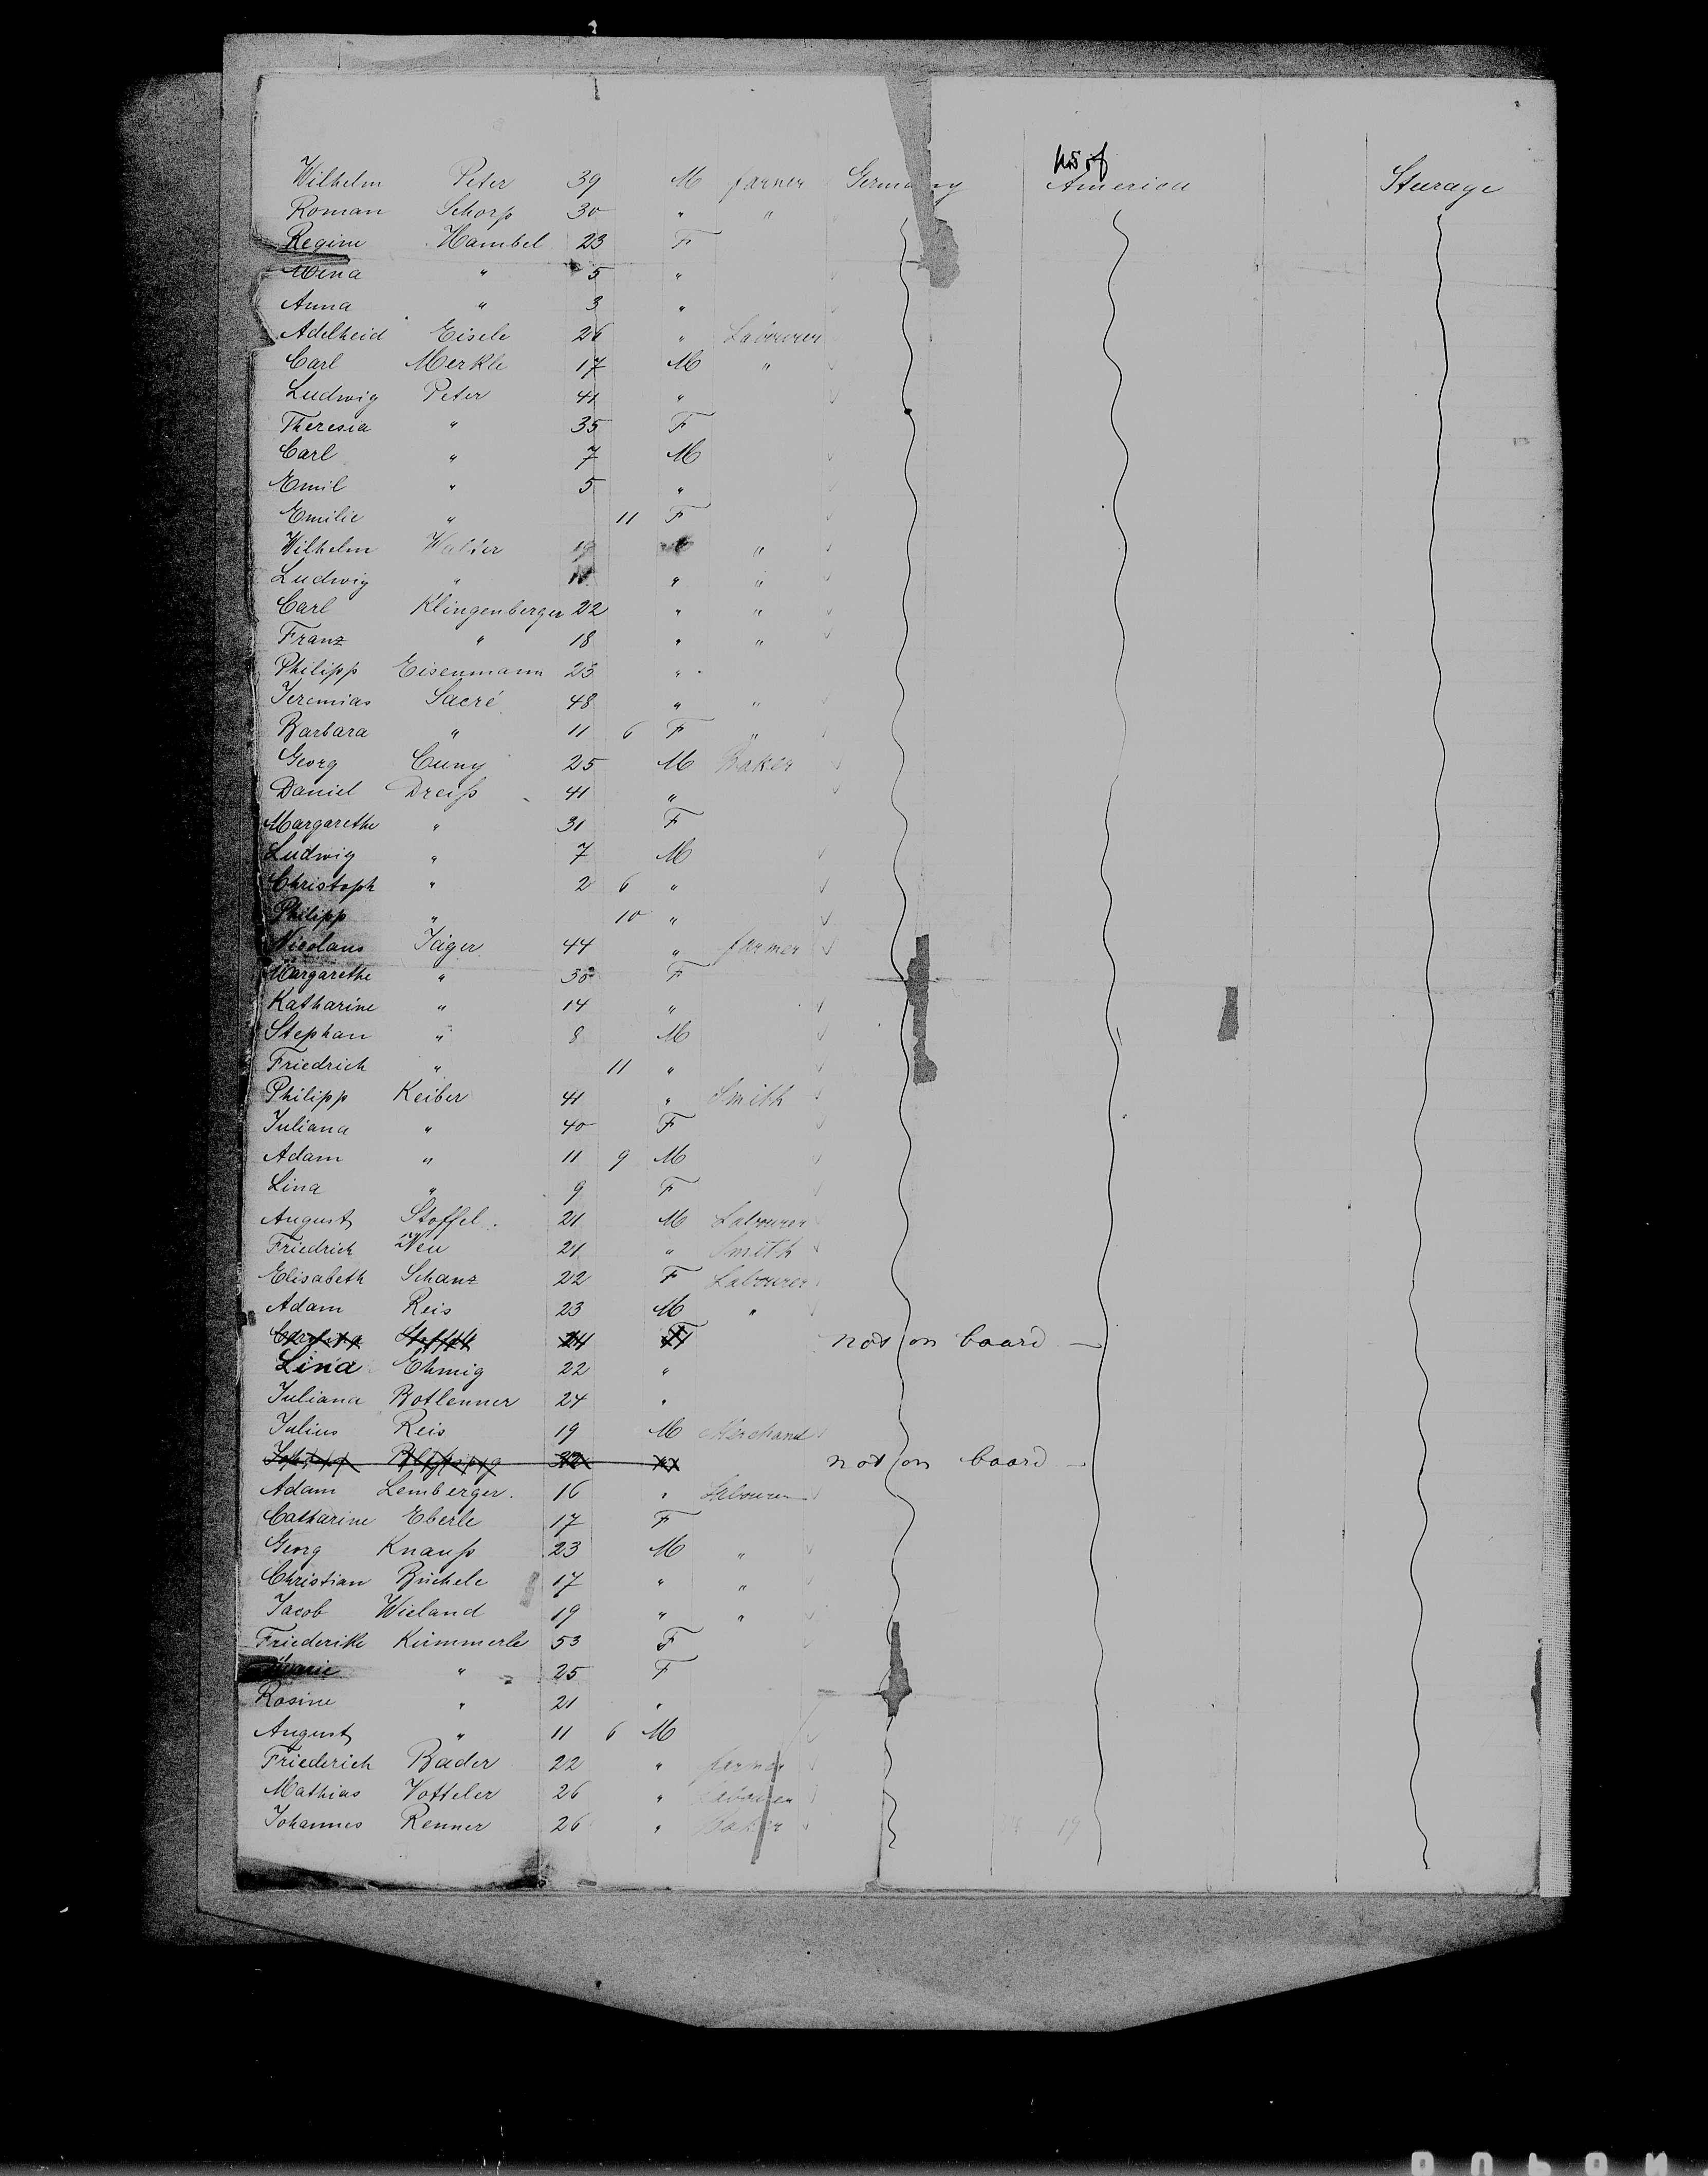 Wilhelm Peter 39 M farmer Germany U.S. of America Steerage
Roman Schorp 30 " "
Regine Hambel 23 F
Mina " 5 "
Anna " 3 "
Adelheid Eisele 26 " Labourer
Carl Merkle 17 M "
Ludwig Peter 41 "
Theresia " 35 F
Carl " 7 M
Emil " 5 "
Emilie " 11 F
Wilhelm Walter 19 "
Ludwig " " "
Carl Klingenberger 22 " "
Franz " 18 " "
Philipp Eisenmann 23 "
Jeremias Sacré 48 " "
Barbara " 11 6 F "
Georg Cuny 25 M Baker
Daniel Dreiß 41 "
Margarethe " 31 F
Ludwig " 7 M
Christoph " 2 6 "
Philipp " 10 "
Nicolaus Jäger 44 " farmer
Margarethe " 50 F
Katharine " 14 "
Stephan " 8 M
Friedrich " 11 "
Philipp Keiber 41 " Smith
Juliana " 40 F
Adam " 11 9 M
Lina " 9 F
August Stoffel 21 M Labourer
Friedrich Neu 21 " Smith
Elisabeth Schanz 22 F Labourer
Adam Reis 23 M "
24 F not on board —
Lina Ehmig 22 "
Juliana Botlenner 24 "
Julius Reis 19 M Merchand
32 not on board —
Adam Lemberger 16 " Labourer
Catharine Eberle 17 F
Georg Knauß 23 M "
Christian Büchele 17 " "
Jacob Wieland 19 " "
Friederike Kümmerle 53 F
Marie " 25 F
Rosine " 21 "
August " 11 6 M
Friederich Bader 22 " farmer
Mathias Votteler 26 " Labourer
Johannes Renner 26 " Baker